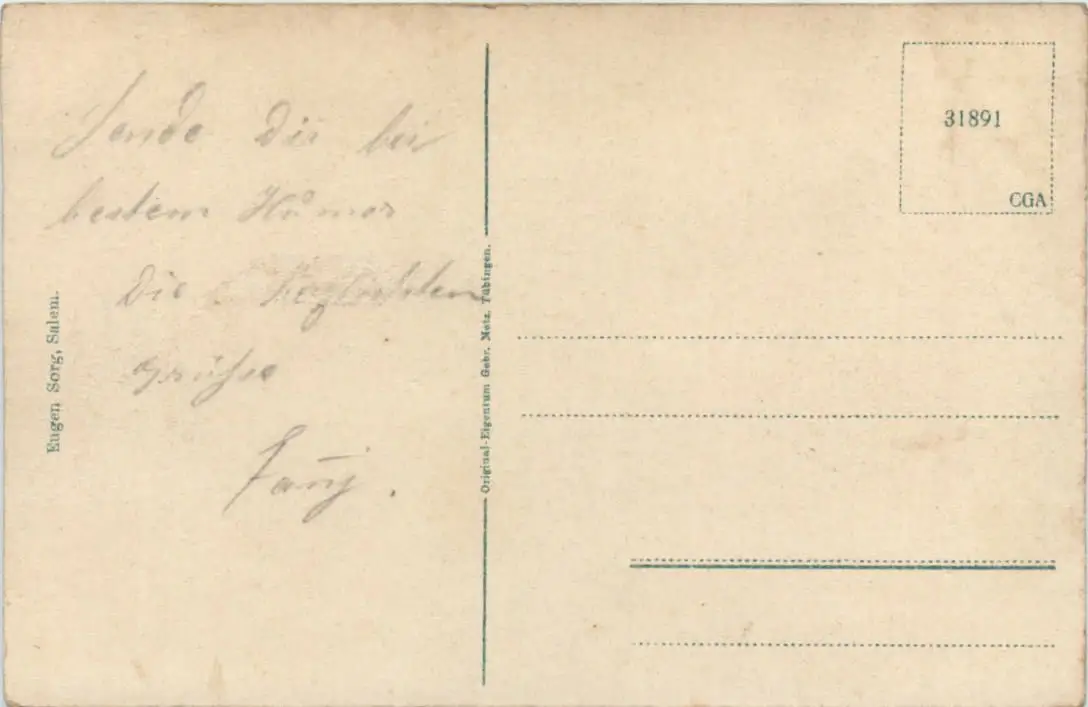 Sende Dir bei
bestem Humor
Die herzlichsten
Grüsse
Eugen Sorg, Salem.
Original-Eigentum Gebr. Metz, Tübingen.
31891
CGA